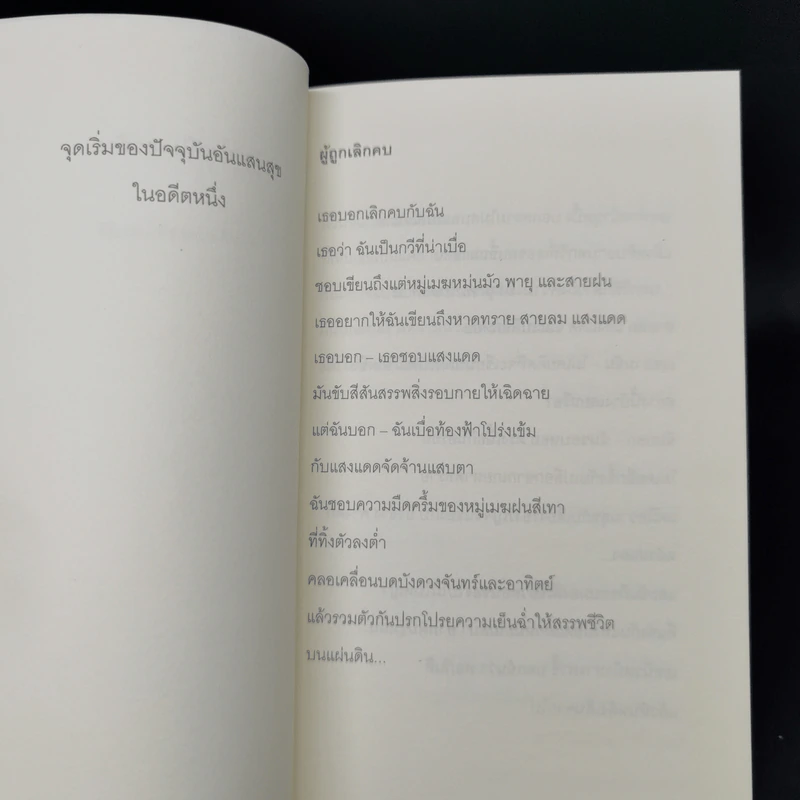 จุดเริ่มของปัจจุบันอันแสนสุข
ในอดีตหนึ่ง
ผู้ถูกเลิกคบ
เธอบอกเลิกคบกับฉัน
เธอว่า ฉันเป็นกวีที่น่าเบื่อ
ชอบเขียนถึงแต่หมู่เมฆหม่นมัว พายุ และสายฝน
เธออยากให้ฉันเขียนถึงหาดทราย สายลม แสงแดด
เธอบอก – เธอชอบแสงแดด
มันขับสีสันสรรพสิ่งรอบกายให้เฉิดฉาย
แต่ฉันบอก – ฉันเบื่อท้องฟ้าโปร่งเข้ม
กับแสงแดดจัดจ้านแสบตา
ฉันชอบความมืดครึ้มของหมู่เมฆฝนสีเทา
ที่ทิ้งตัวลงต่ำ
คลอเคลื่อนบดบังดวงจันทร์และอาทิตย์
แล้วรวมตัวกันปรกโปรยความเย็นฉ่ำให้สรรพชีวิต
บนแผ่นดิน...